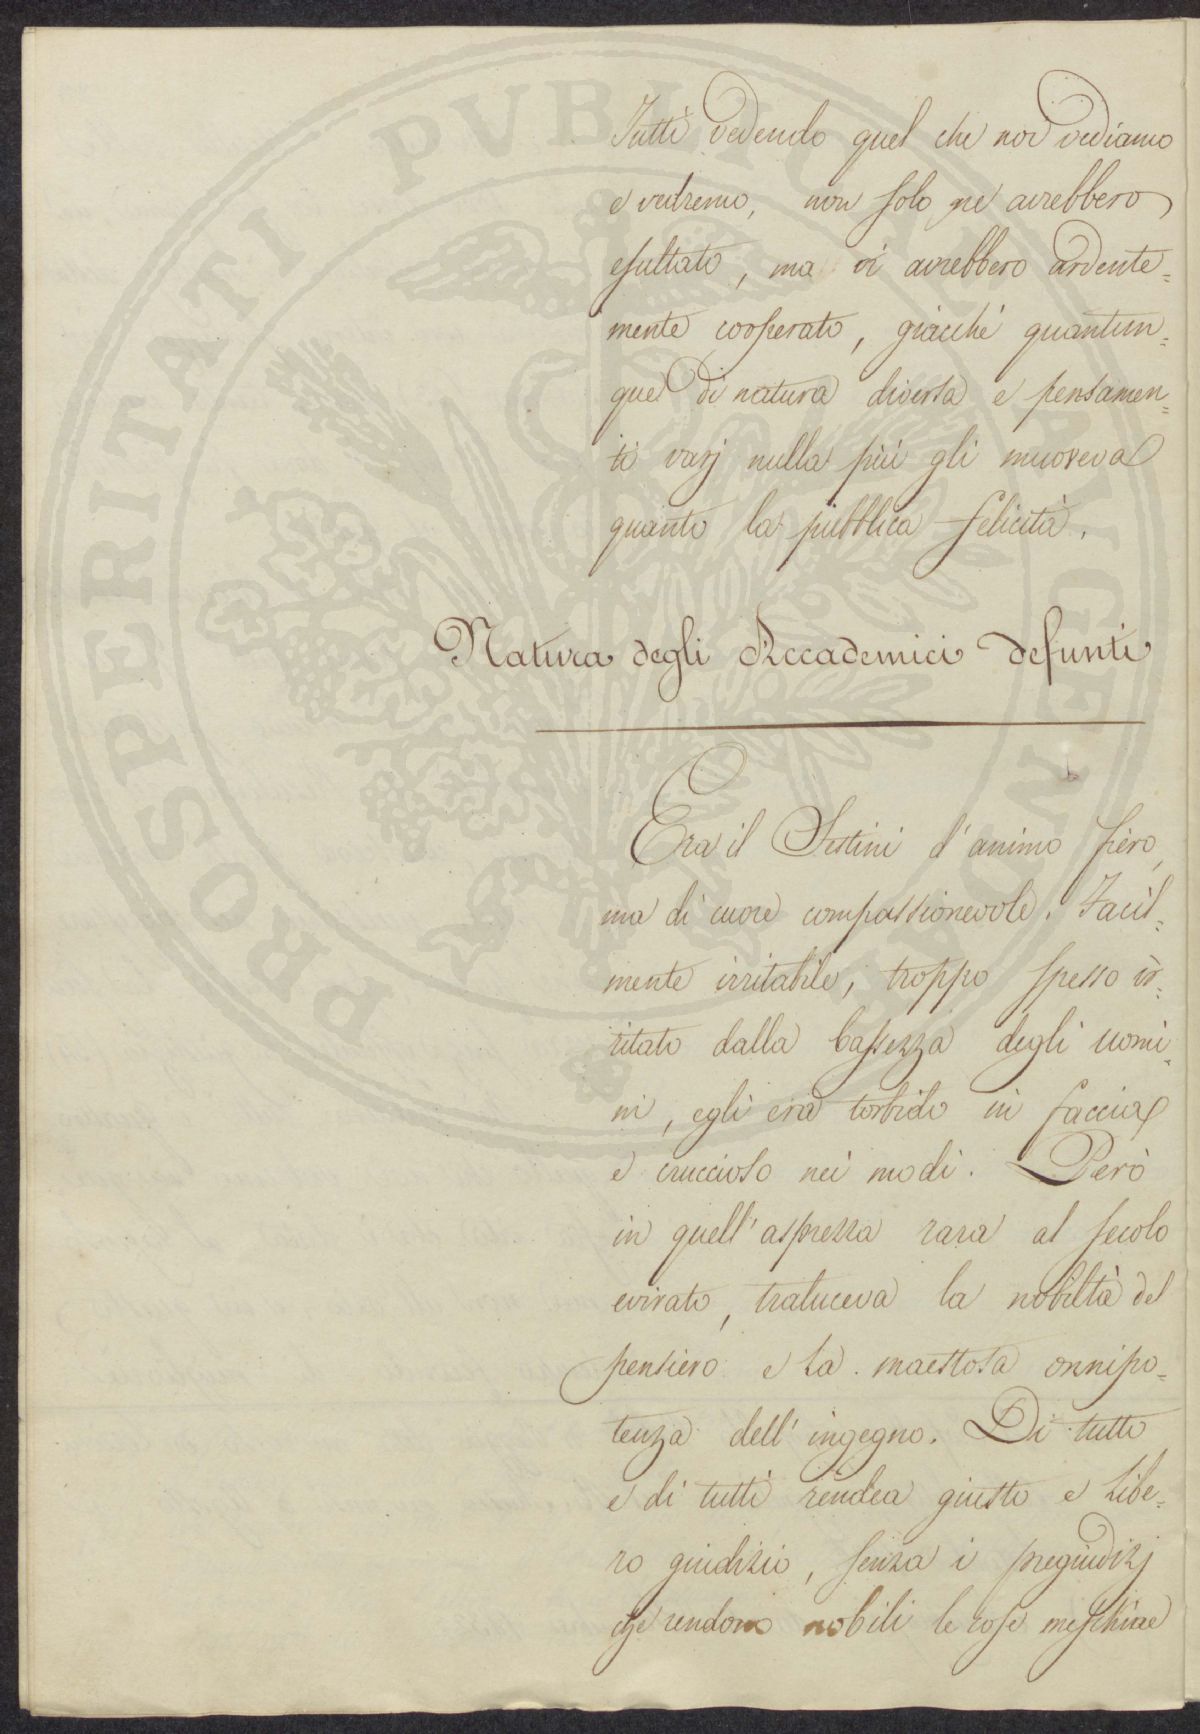 PROSPERITATI PVBLICAE AVGENDAE
Tutti vedendo quel che noi vediamo
e vedremo, non solo ne avrebbero
esultato, ma vi avrebbero ardente=
mente cooperato, giacché quantun=
que di natura diversa e pensamen=
ti varj nulla più gli muoveva
quanto la pubblica felicità.
Natura degli Accademici defunti
Era il Sestini d'animo fiero,
ma di cuore compassionevole. Facil=
mente irritabile, troppo spesso ir=
ritato dalla bassezza degli uomi=
ni, egli era torbido in faccia
e cruccioso nei modi. Però
in quell'asprezza rara al secolo
evirato, traluceva la nobiltà del
pensiero e la maestosa onnipo=
tenza dell'ingegno. Di tutto
e di tutti rendea giusto e libe=
ro giudizio, senza i pregiudizj
che rendono nobili le cose meschine